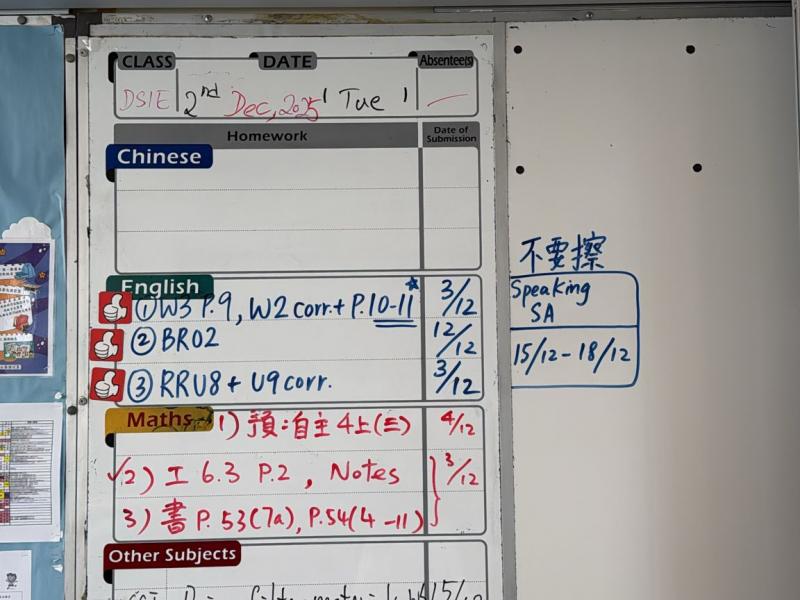 CLASS DATE Absentee(s)
DSIE 2nd Dec, 2025 Tue
Homework Date of Submission
Chinese
English
①W3 P.9, W2 corr. + P.10-11 3/12
②BR02 12/12
③RRU8 + U9 corr. 3/12
Maths
1) 預:自主4上(三) 4/12
2) 工 6.3 P.2, Notes 3/12
3) 書 P.53(7a), P.54(4-11)
Other Subjects
15/12
不要擦
Speaking
SA
15/12-18/12